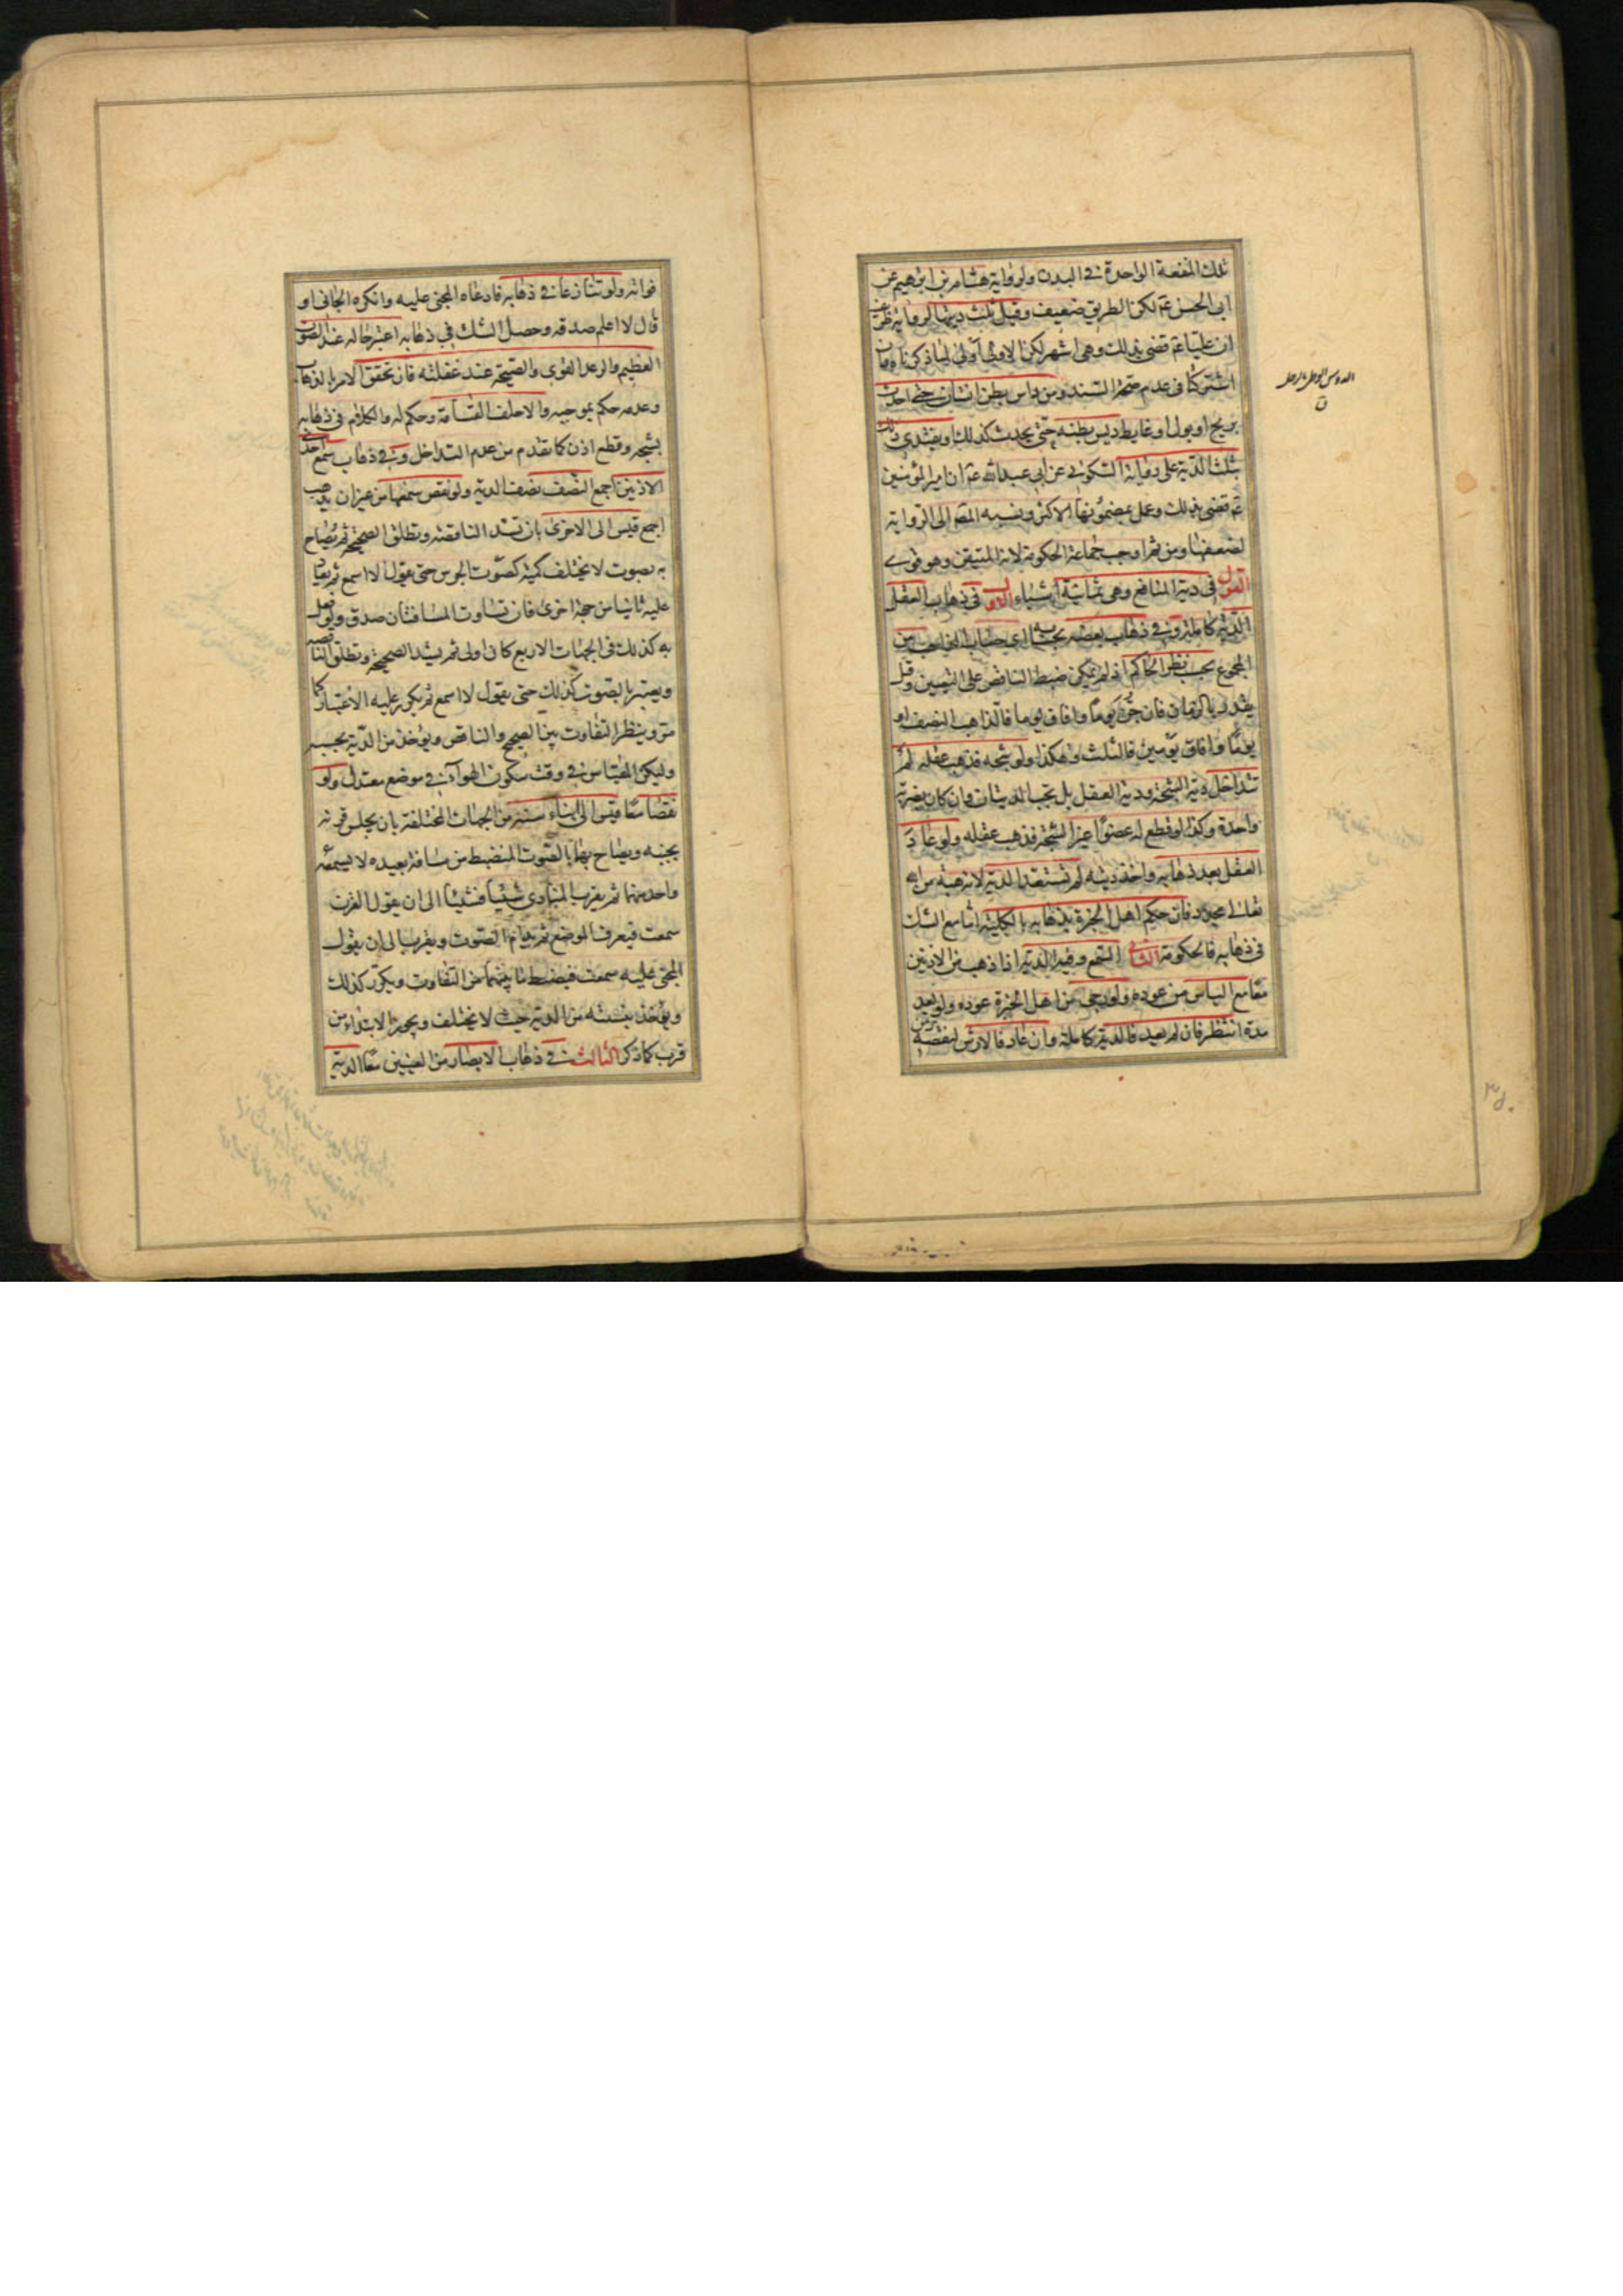 تلك المنفعة الواحدة في البدن ولرواية هشام بن ابرهيم عن
ابي الحسن عم لكن الطريق ضعيف وقيل ثلث ديتها لرواية
ان عليا عم قضى بذلك وهي اشهر لكن الاولى اولى لما ذكرناه وان
اشتركا في عدم صحة السند ومن داس بطن انسان حتى احدث
بريح او بول او غايط ديس بطنه حتى يحدث كذلك او يفتدي ذلك
بثلث الدية على رواية السكوني عن ابي عبدالله عم ان امير المؤمنين
عم قضى بذلك وعمل بمضمونها الاكثر ونسبه المص الى الرواية
لضعفها ومن ثم اوجب جماعة الحكومة لانه المتيقن وهو قوي
القول في دية المنافع وهي ثمانية اشياء الاول في ذهاب العقل
الدية كاملة وفي ذهاب بعضه بحسابه اي حساب الذاهب من
المجموع بحسب نظر الحاكم اذ لا يمكن ضبط الناقص على اليقين وقيل
يقدر بالزمان فان جن يوما وافاق يوما فالذاهب النصف او
يوما وافاق يومين فالثلث وهكذا ولو شجه فذهب عقله لم
تتداخل دية الشجة ودية العقل بل تجب الديتان وان كان بضربة
واحدة وكذا لو قطع له عضوا غير الشجة فذهب عقله ولو عاد
العقل بعد ذهابه واخذ ديته لم تستعد الدية لانه هبة من الله
تعالى مجددة فان حكم اهل الخبرة بذهابه بالكلية اما مع الشك
في ذهابه فالحكومة الثاني السمع وفيه الدية اذا ذهب من الاذنين
معا مع الياس من عوده ولو رجى من اهل الخبرة عوده ولو بعد
مدة انتظر فان لم يعد فالدية كاملة وان عاد فالارش لنقصه
زمن
فواته ولو تنازعا في ذهابه فادعاه المجني عليه وانكره الجاني او
قال لا اعلم صدقه وحصل الشك في ذهابه اعتبر حاله عند الصوت
العظيم والرعد القوي والصيحة عند غفلته فان تحقق الامر بالذهاب
وعدمه حكم بموجبه والا حلف القسامة وحكم له والكلام في ذهابه
بشجة وقطع اذن كما تقدم من عدم التداخل وفي ذهاب سمع احدى
الاذنين اجمع النصف نصف الدية ولو نقص سمعها من غير ان يذهب
اجمع قيس الى الاخرى بان تسد الناقصة وتطلق الصحيحة ثم يصاح
به بصوت لا يختلف كمية كصوت الجرس حتى يقول لا اسمع ثم يعاد
عليه ثانيا من جهة اخرى فان تساوت المسافتان صدق ولو فعل
به كذلك في الجهات الاربع كان اولى ثم يسد الصحيحة وتطلق الناقصة
ويعتبر بالصوت كذلك حتى يقول لا اسمع ثم يكرر عليه الاعتبار كما
مر وينظر التفاوت بين الصحيح والناقص ويؤخذ من الدية بحسبه
وليكن القياس في وقت سكون الهوآء في موضع معتدل ولو
نقصا معا قيس الى ابناء سنه من الجهات المختلفة بان يجلس قرنه
بجنبه ويصاح بهما بالصوت المنضبط من مسافة بعيدة لا يسمعه
واحد منهما ثم يقرب المنادي شيئا فشيئا الى ان يقول القرن
سمعت فيعرف الموضع ثم يدام الصوت ويقرب الى ان يقول
المجني عليه سمعت فيضبط ما بينهما من التفاوت ويكرر كذلك
ويؤخذ بنسبته من الدية حيث لا يختلف ويجوز الابتداء من
قرب كما ذكر الثالث في ذهاب الابصار من العينين معا الدية